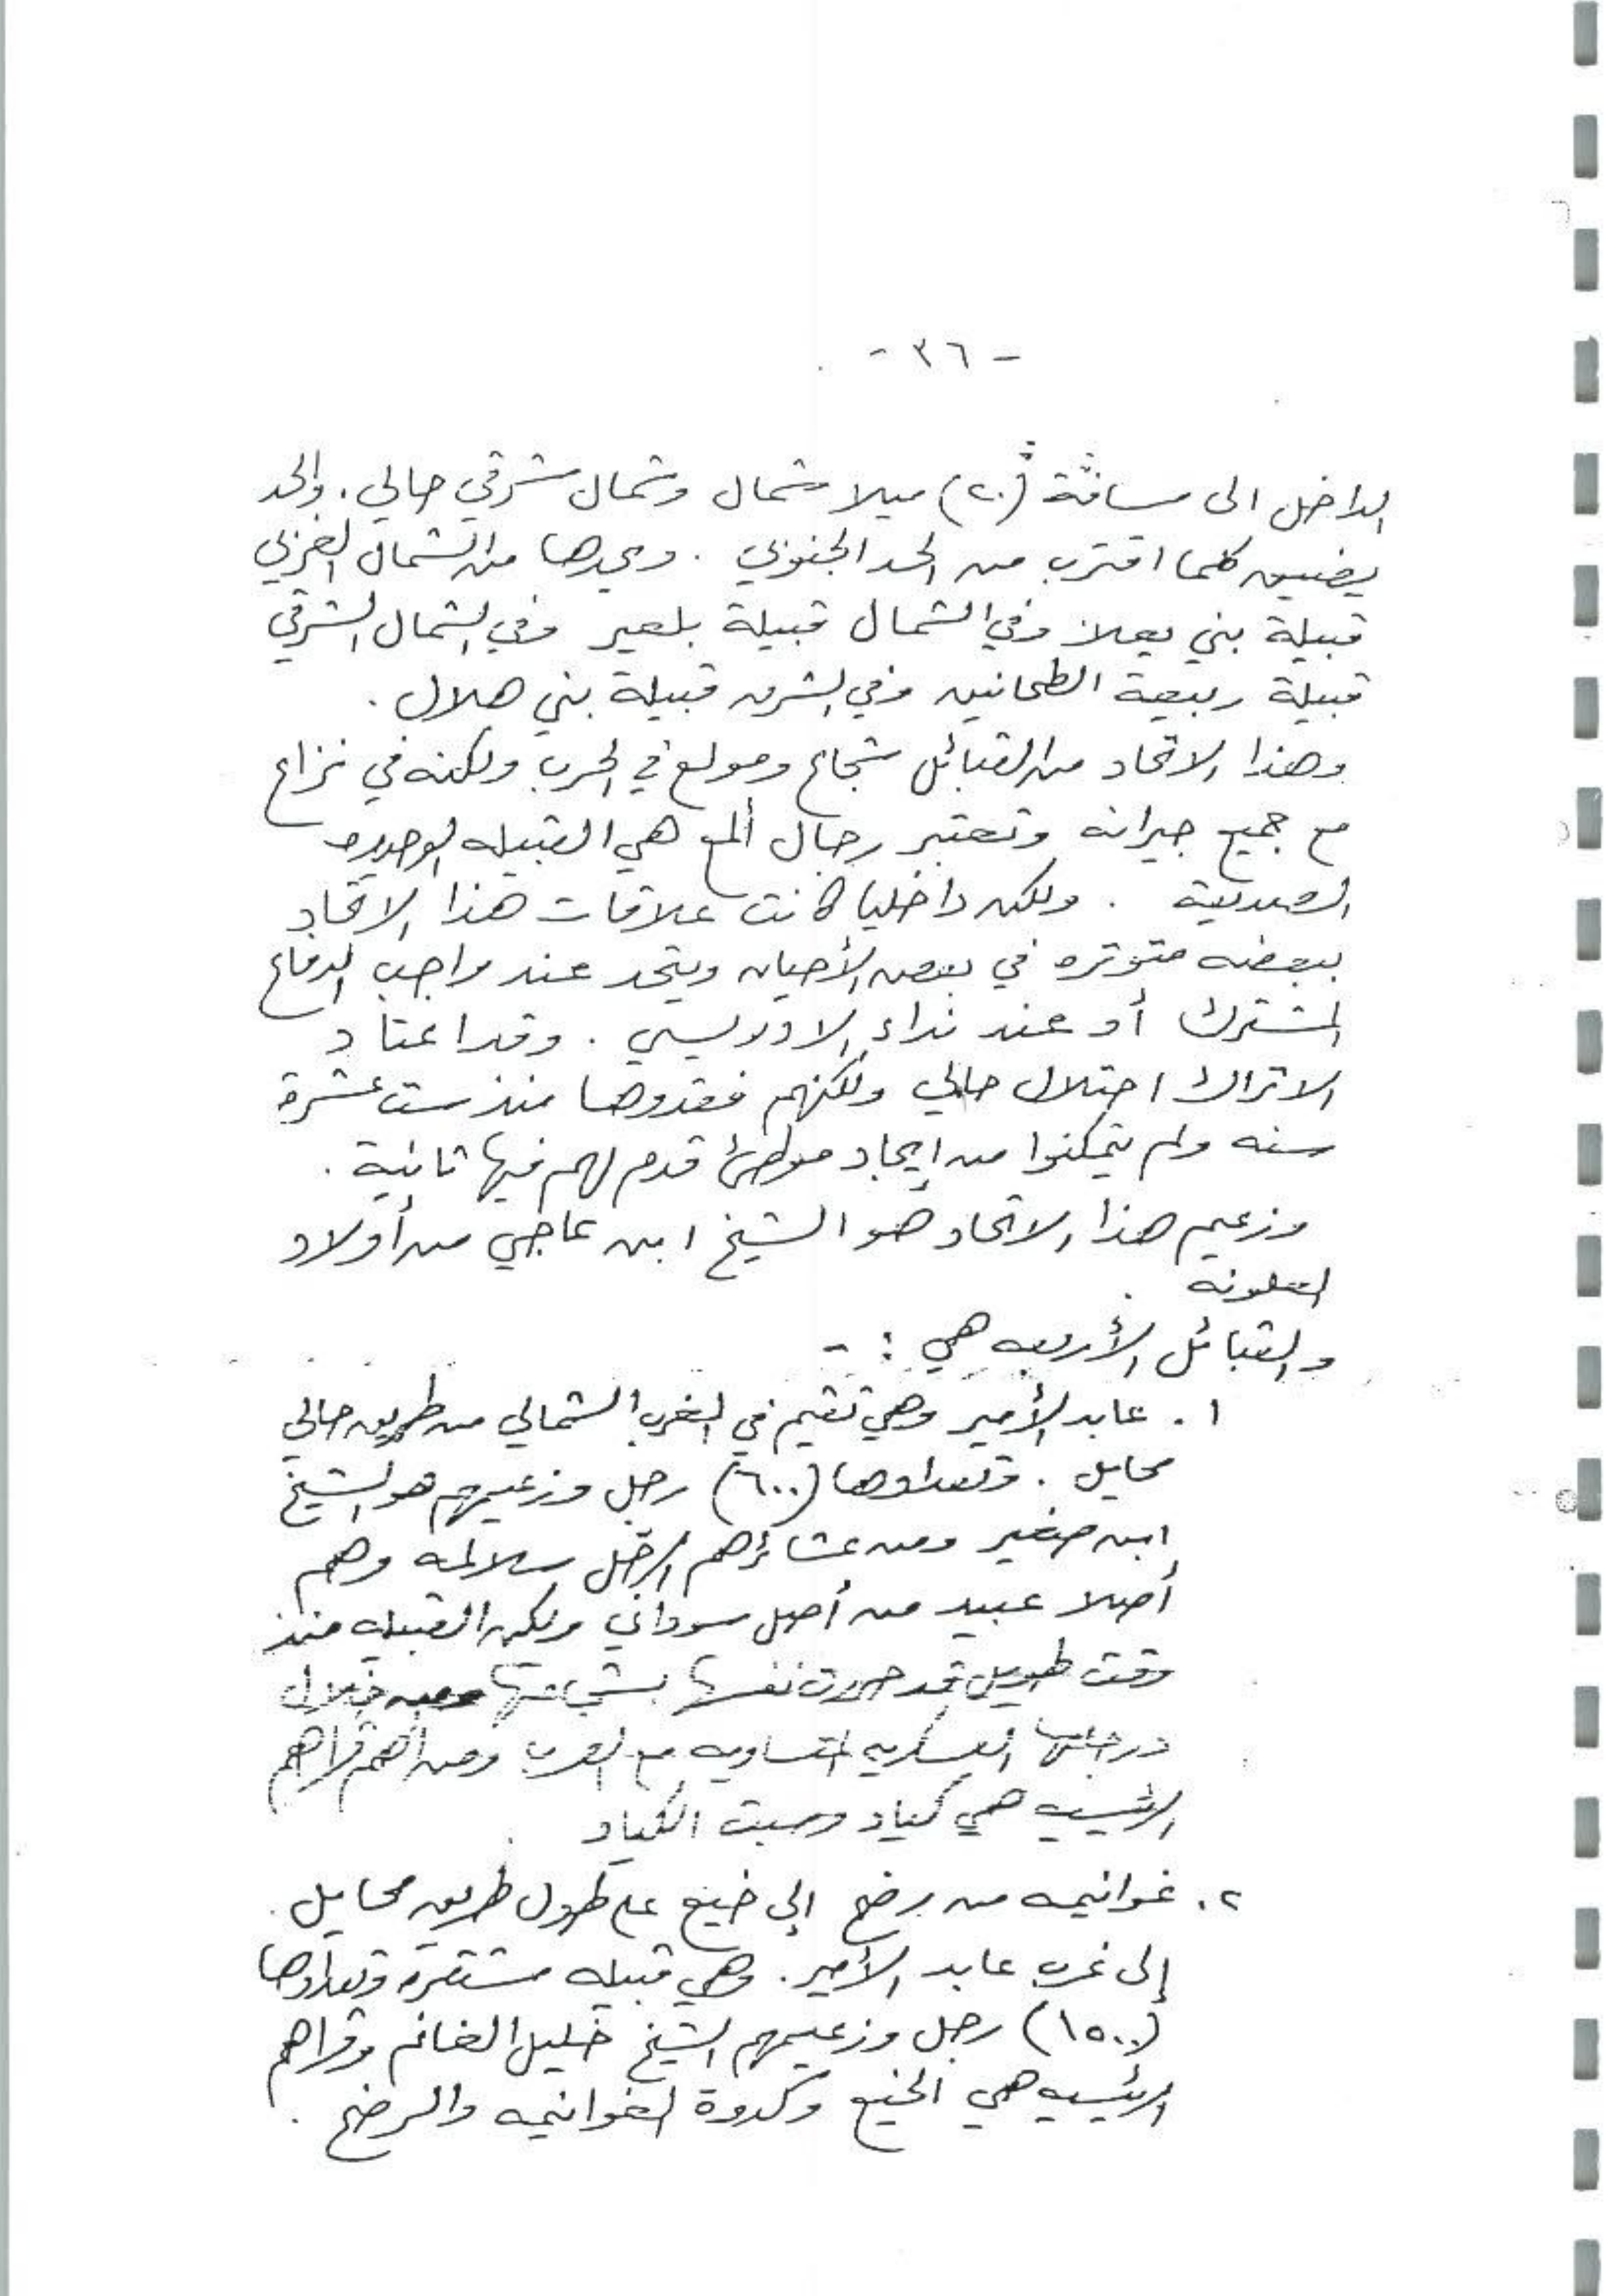 - ٣٦ -
الداخل الى مسافة (٢٠) ميلا شمال وشمال شرقي حالي. والحد
يضيق كلما اقترب من الحد الجنوبي . ويحدها من الشمال الغربي
قبيلة بني يعلا وفي الشمال قبيلة بلعير وفي الشمال الشرقي
قبيلة ربيعة الطحانين وفي الشرق قبيلة بني هلال .
وهذا الاتحاد من القبائل شجاع ومولع في الحرب ولكنه في نزاع
مع جميع جيرانه وتعتبر رجال ألمع هي القبيله الوحيده
الصديقة . ولكن داخليا كانت علاقات هذا الاتحاد
ببعضه متوتره في بعض الأحيان ويتحد عند واجب الدفاع
المشترك أو عند نداء الادريسي . وقد اعتاد
الاتراك احتلال حالي ولكنهم فقدوها منذ ست عشرة
سنه ولم يتمكنوا من إيجاد موطئ قدم لهم فيها ثانية .
وزعيم هذا الاتحاد هو الشيخ ابن عاجي من أولاد
العلونه .
والقبائل الأربعه هي : -
١. عابد الأمير وهي تقيم في الغرب الشمالي من طريق حالي
محايل . وتعدادها (٦٠٠) رجل وزعيمهم هو الشيخ
ابن صغير ومن عشائرهم الرحّل سلالمه وهم
أصلا عبيد من أصل سوداني ولكن القبيله منذ
وقت طويل قد حررت نفسها بشجاعتها خلال
درجاتها العسكريه المتساويه مع العرب ومن أهم قراهم
الرئيسيه هي كياد وسبت الكياد .
٢. غوانيمه من رضح إلى خيع على طول طريق محايل .
إلى غرب عابد الأمير . وهي قبيله مستقرة وتعدادها
(١٥٠٠) رجل وزعيمهم الشيخ خليل الغانم وقراهم
الرئيسيه هي الخيع وكدوة الغوانيمه والرضح .